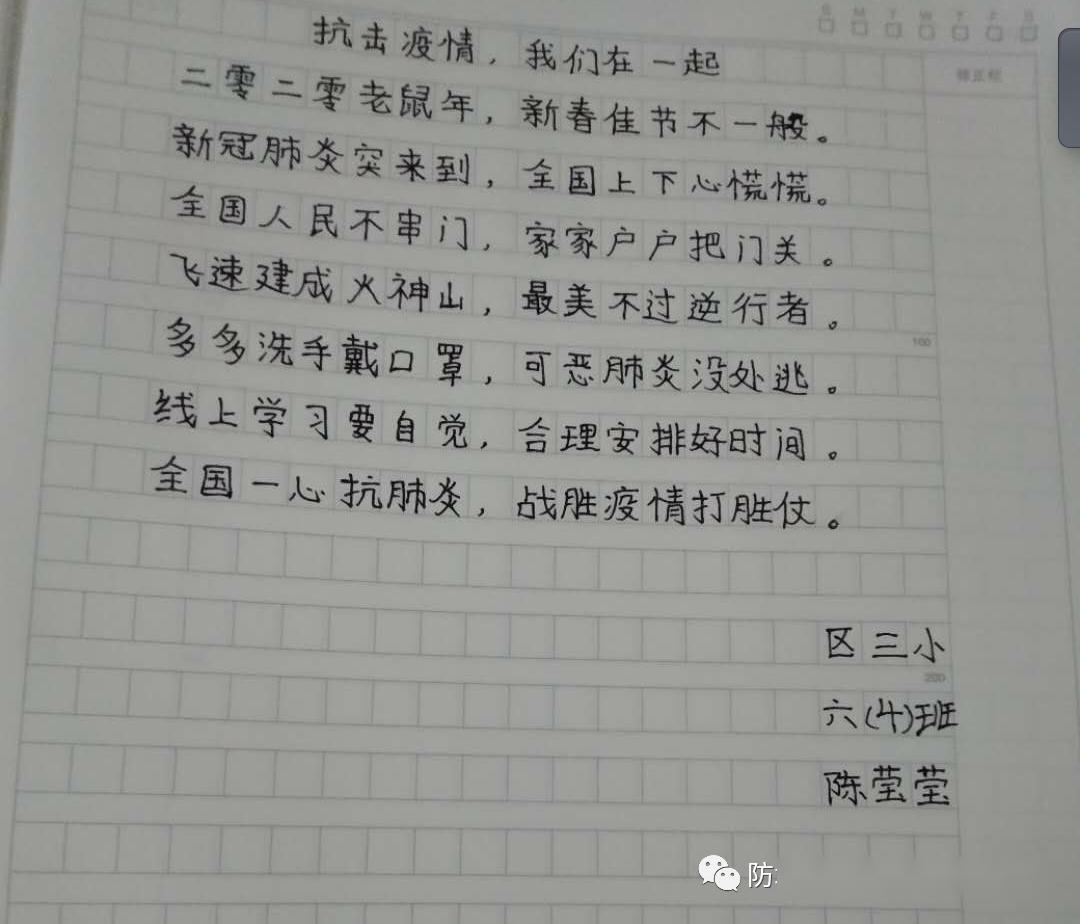 S M T W T F S
抗击疫情，我们在一起
二零二零老鼠年，新春佳节不一般。
新冠肺炎突来到，全国上下心慌慌。
全国人民不串门，家家户户把门关。
飞速建成火神山，最美不过逆行者。
100
多多洗手戴口罩，可恶肺炎没处逃。
线上学习要自觉，合理安排好时间。
全国一心抗肺炎，战胜疫情打胜仗。
区三小
200
六(4)班
陈莹莹
防